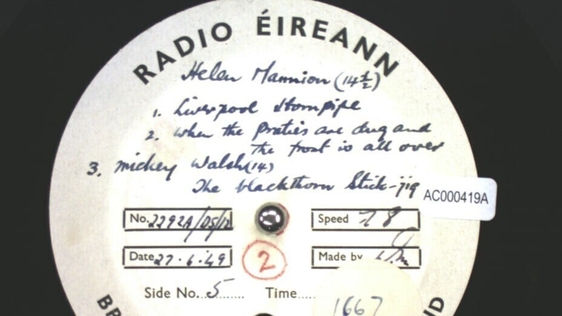 RADIO ÉIREANN
Helen Mannion (14½)
1. Liverpool Hornpipe
2. When the praties are dug and
the frost is all over
3. Mickey Walsh (14)
The blackthorn Stick - jig
AC000419A
No. 2292A/DS/
Speed 78
Date 27.6.49
2
Made by
Side No. 5 Time
1667